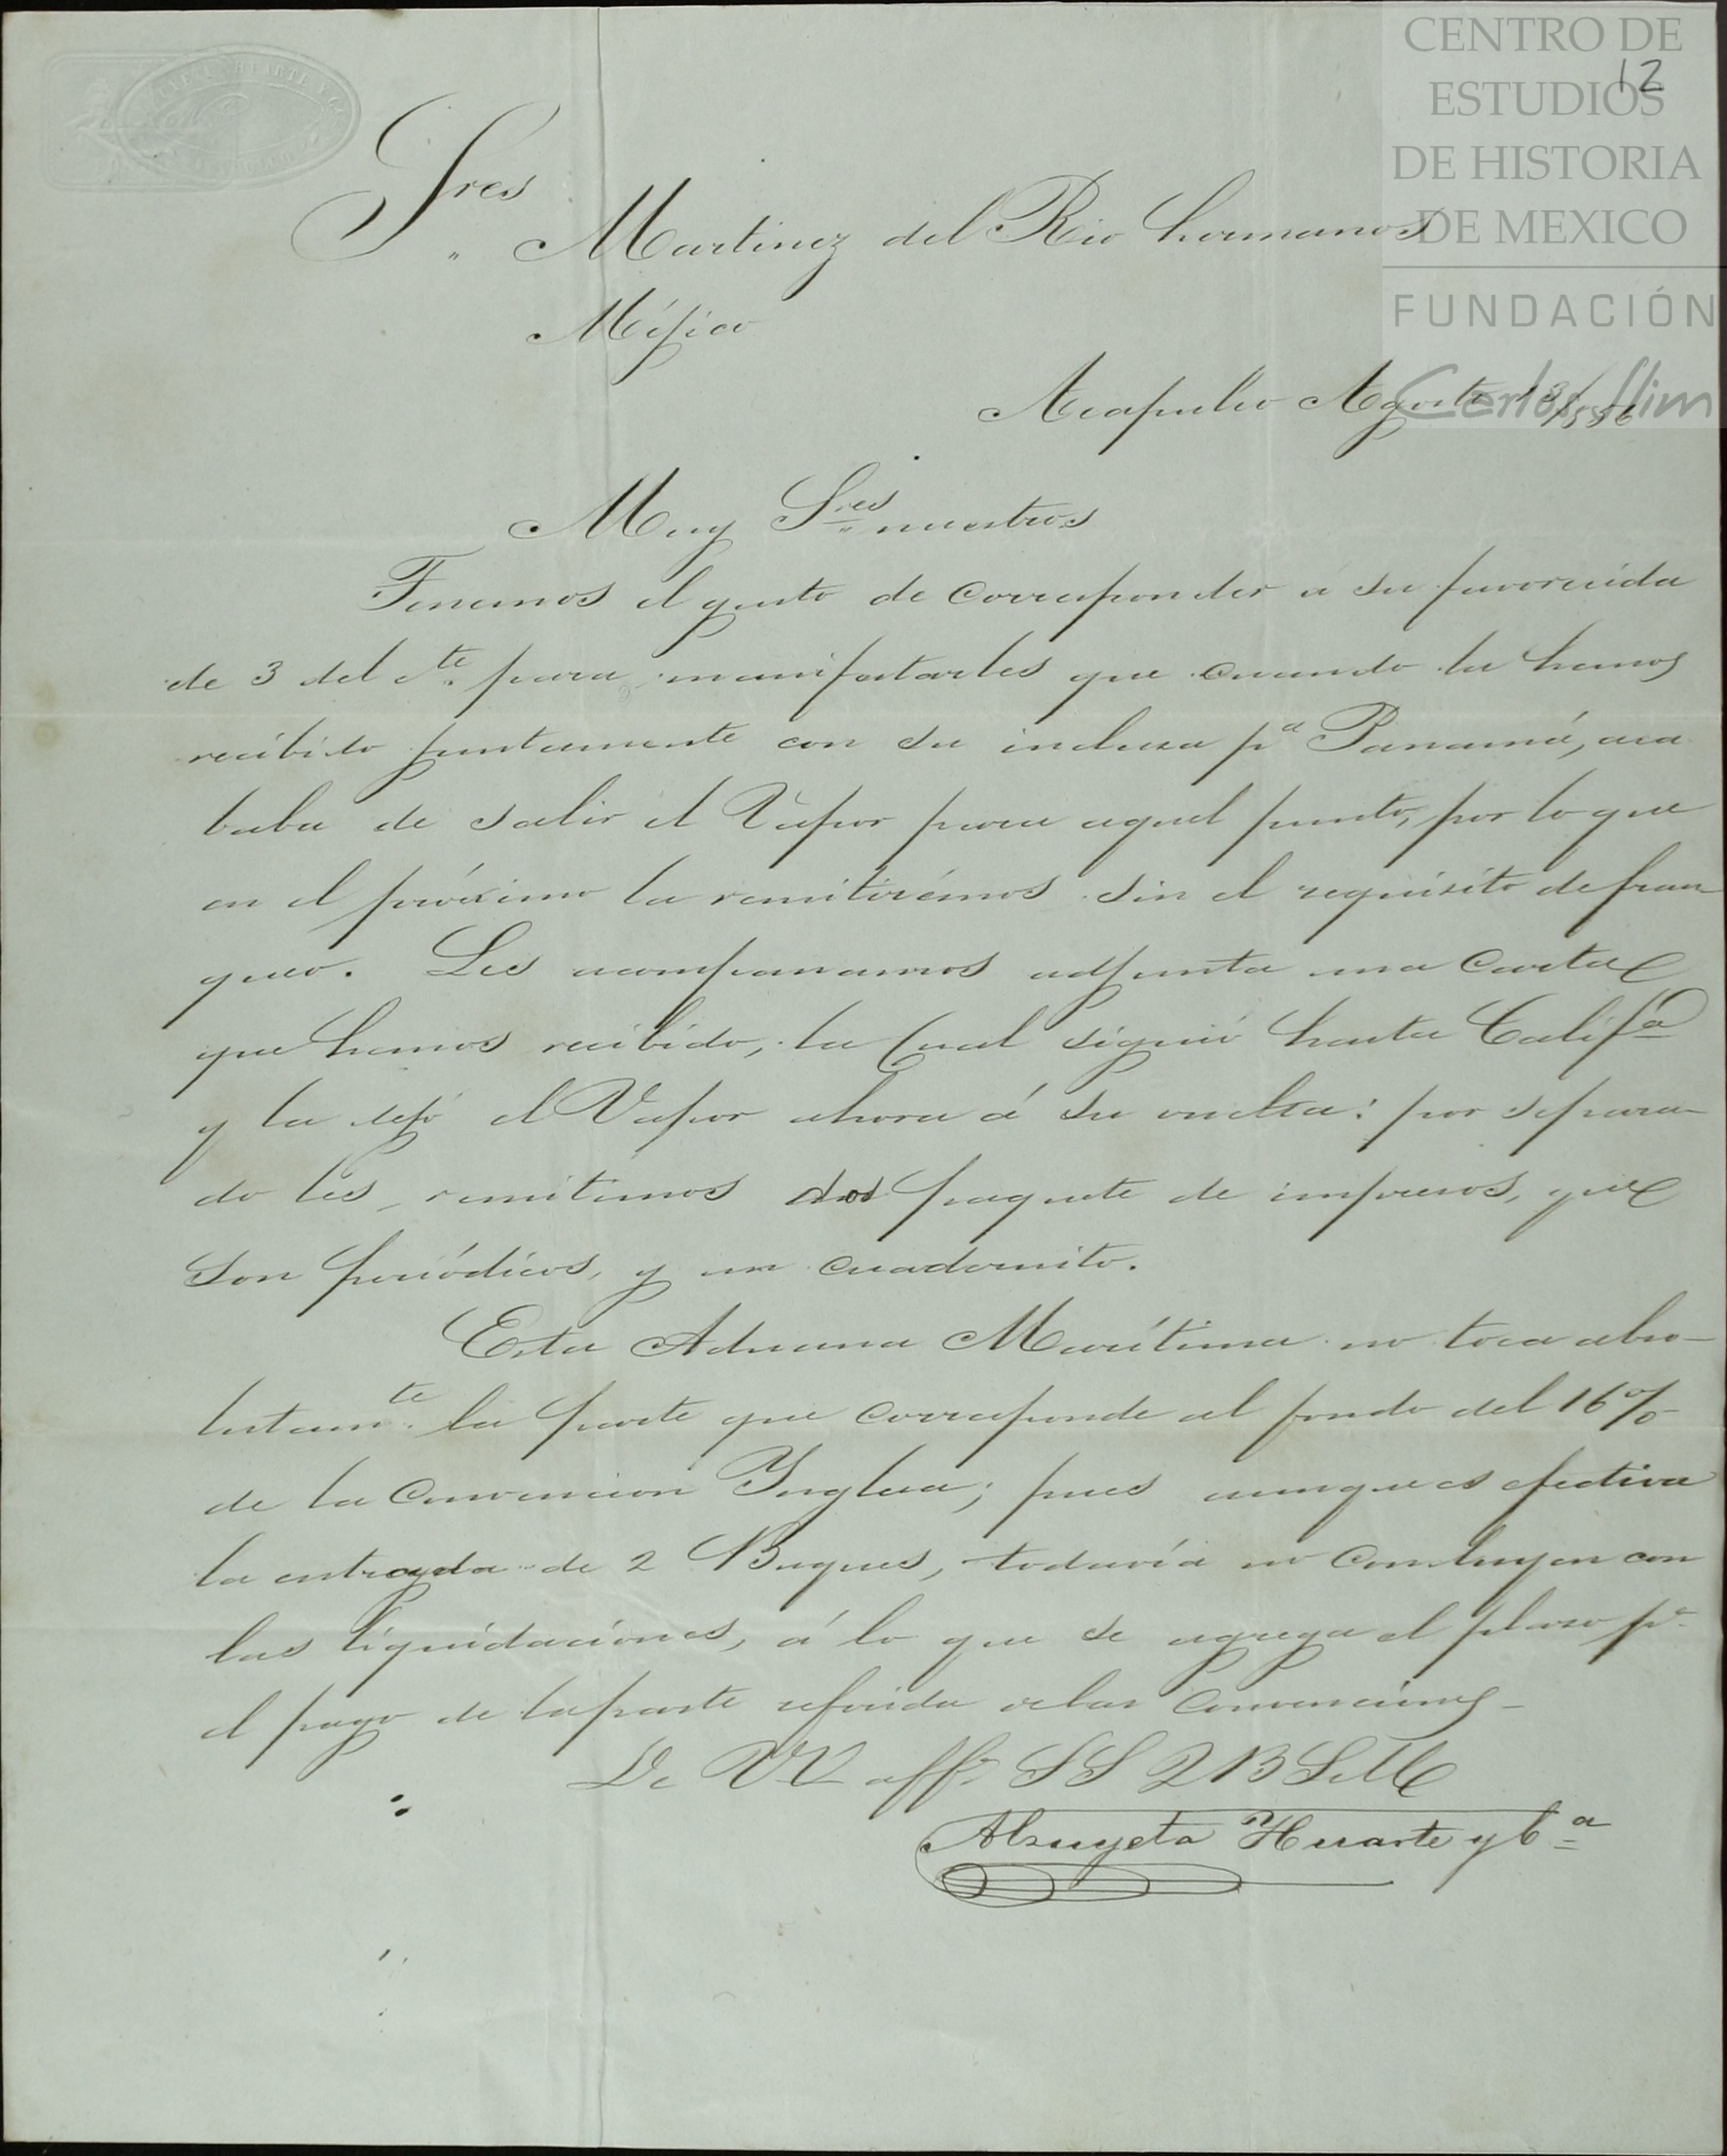 CENTRO DE
ESTUDIOS
DE HISTORIA
DE MEXICO
FUNDACIÓN
Carlos Slim
12
Sres
Martinez del Rio hermanos
Méjico
Acapulco Agosto 13/856
Muy Sres nuestros
Tenemos el gusto de corresponder á su favorecida
de 3 del cte. para manifestarles que cuando la hemos
recibido juntamente con su inclusa pa Panamá, aca
baba de salir el Vapor para aquel punto, por lo que
en el próximo la remitirémos sin el requisito de fran
queo. Les acompanamos adjunta una carta
que hemos recibido, la cual siguió hasta Califa
y la dejó el Vapor ahora á su vuelta: por separa-
do les remitimos dos paquete de impresos, que
son periódicos, y un cuadernito.
Esta Aduana Marítima no toca abso-
lutamte. la parte que corresponde al fondo del 16%
de la Convencion Ynglesa; pues aunque es efectiva
la entrada de 2 Buques, todavía no concluyen con
las liquidaciones, á lo que se agrega el plazo pa
el pago de la parte referida de las Convenciones-
De VV affs. SS Q B S M
Alzuyeta Huarte y Ca